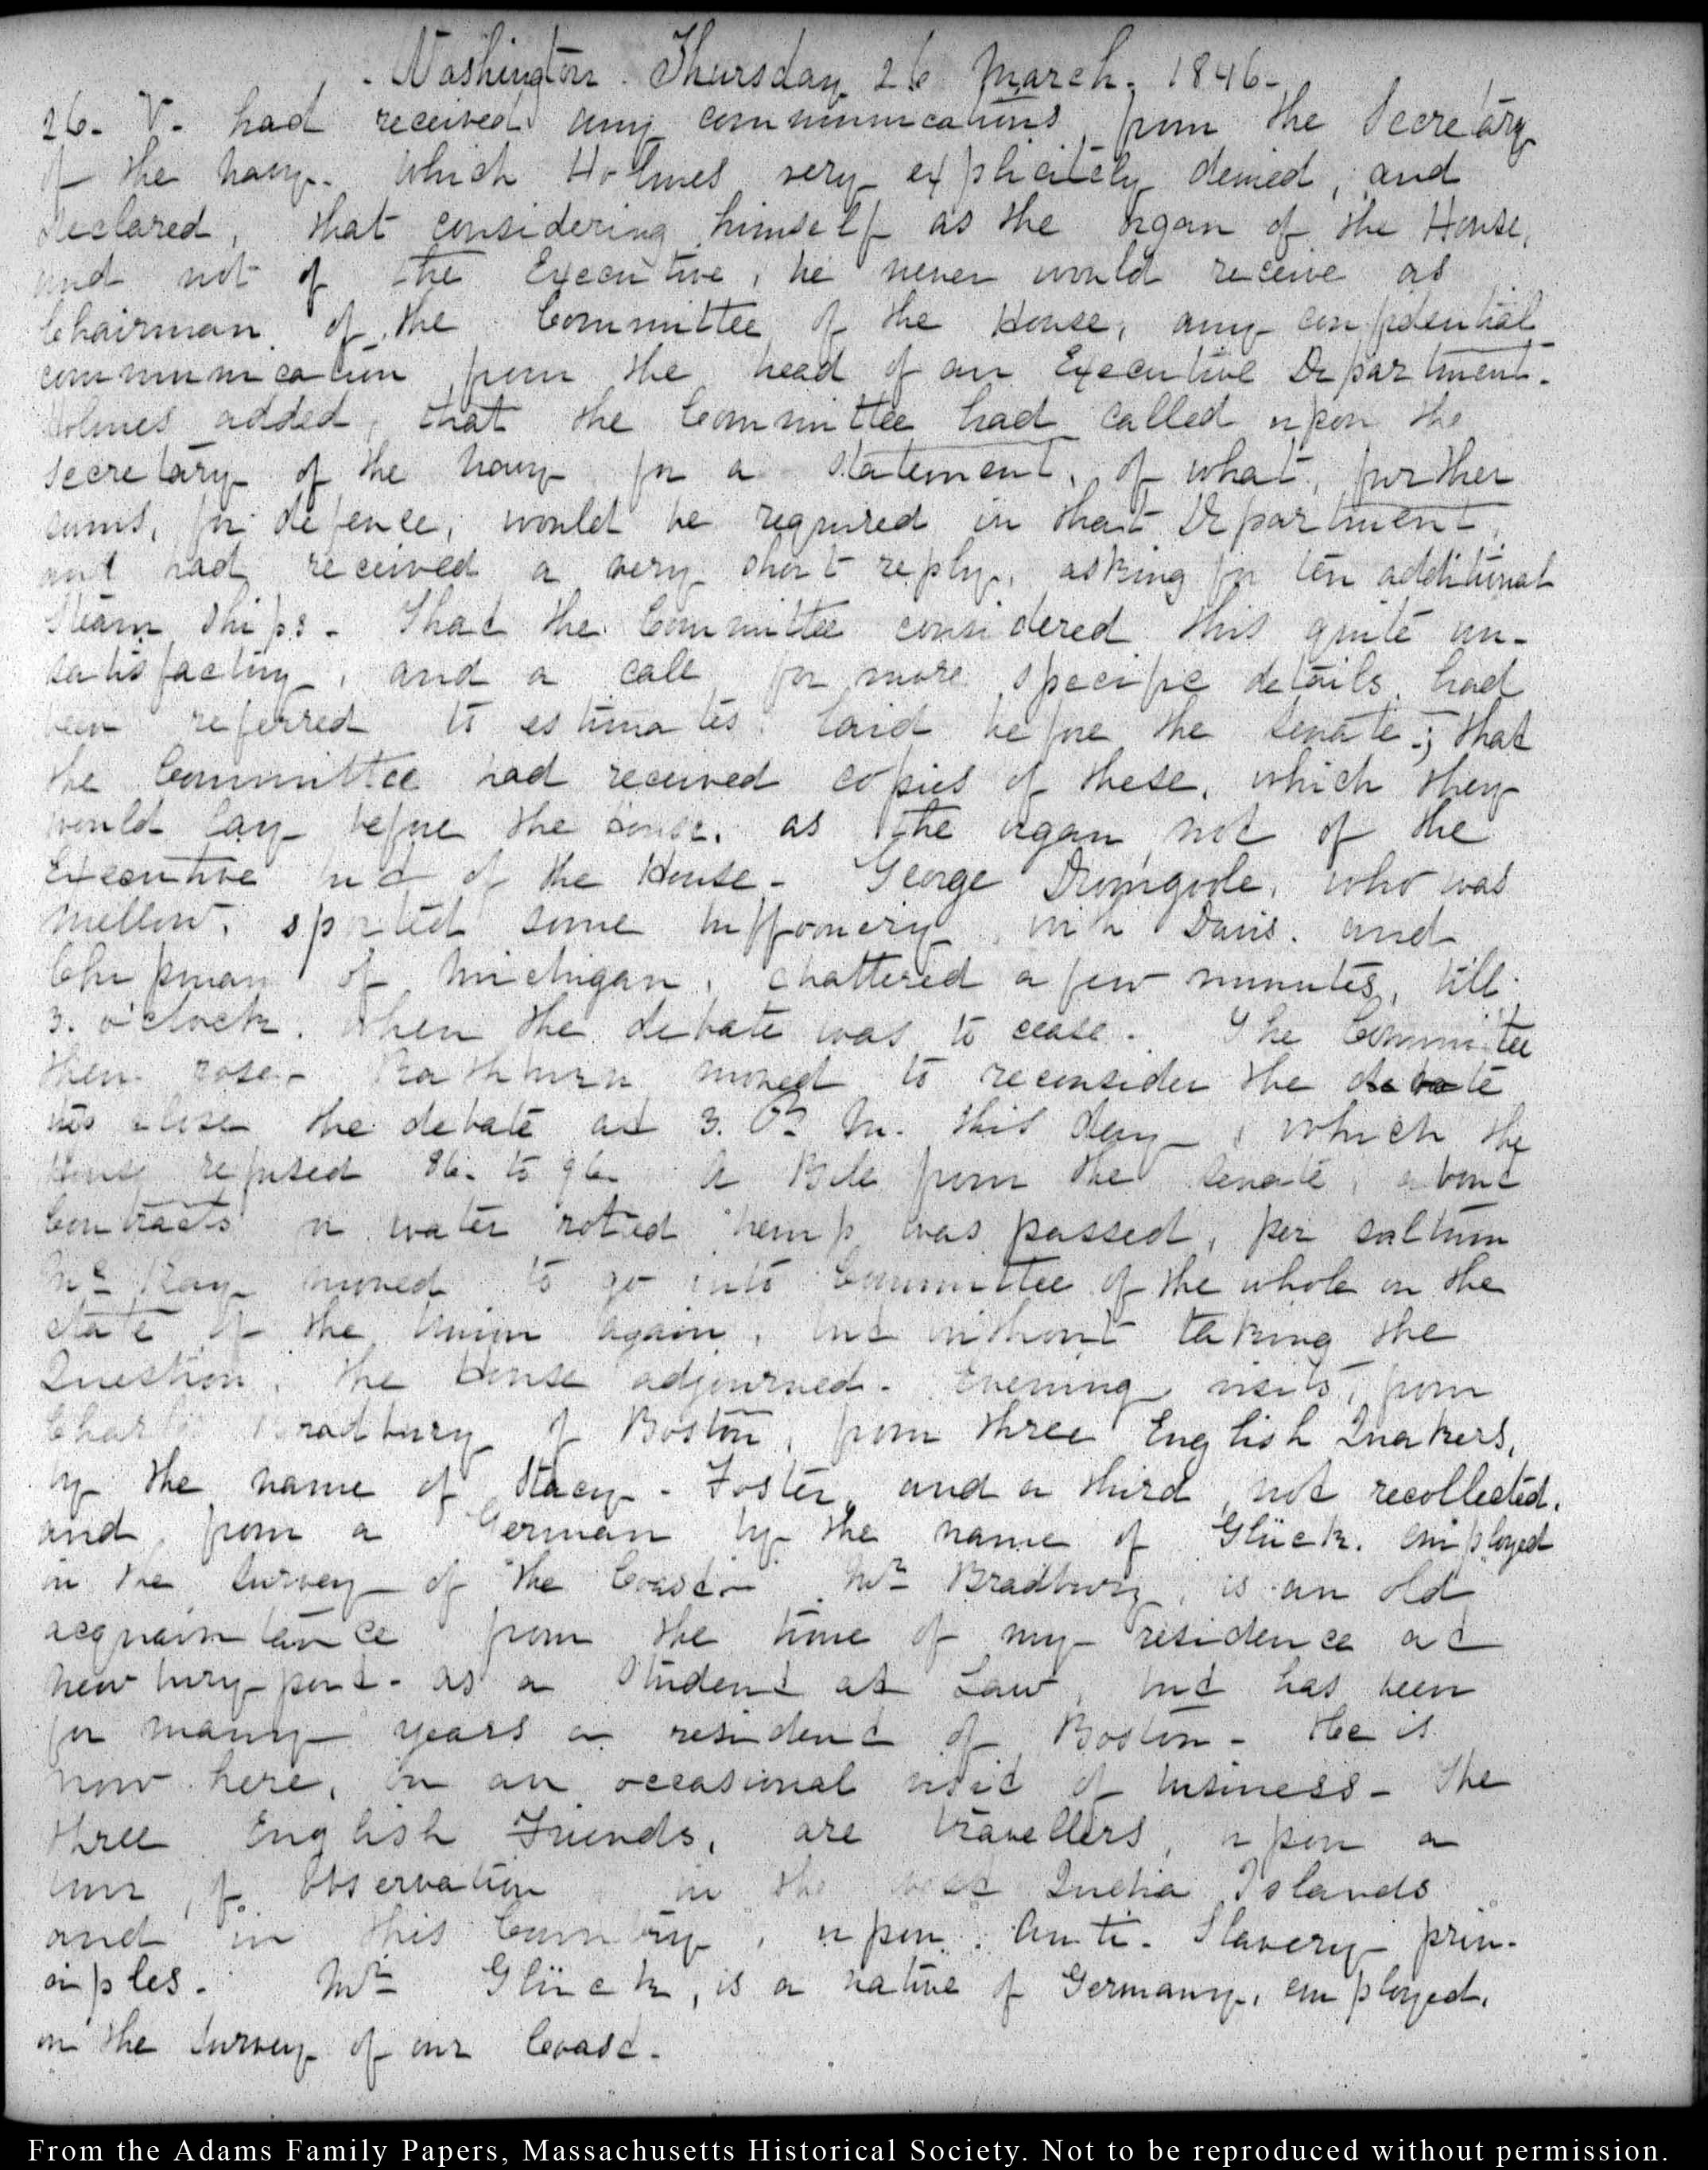 Washington. Thursday 26 March. 1846.
26. V. had received any communications, from the Secretary
of the Navy. which Holmes very explicitely denied, and
declared, that considering himself as the organ of the House,
and not of the Executive, he never would receive as
Chairman of the Committee of the House, any confidential
communication from the head of an Executive Department.
Holmes added, that the Committee had called upon the
Secretary of the Navy for a statement, of what, further
sums, for defence, would be required in that Department,
and had received a very short reply, asking for ten additional
Steam Ships. That the Committee considered this quite un-
satisfactory, and a call for more specific details had
been referred to estimates laid before the Senate; that
the Committee had received copies of these, which they
would lay before the House, as the organ, not of the
Executive but of the House. George Dromgoole, who was
mellow, sported some buffoonery with Davis. and
Chipman of Michigan, chattered a few minutes, till
3. o'clock. when the debate was to cease. The Committee
then rose. Rathbun moved to reconsider the debate
to close the debate at 3. P. M. this day, which the
House refused 86. to 96. A Bill from the Senate, about
Contracts in water rotted hemp was passed, per saltum
Mr. Kay moved to go into Committee of the whole on the
state of the Union again, but without taking the
Question, the House adjourned. Evening visits, from
Charles Bradbury of Boston, from three English Quakers,
by the name of Stacy. Foster, and a third, not recollected.
and from a German by the name of Glück. employed
in the Survey of the Coast. Mr. Bradbury, is an old
acquaintance from the time of my residence at
Newbury-port. as a Student at Law, but has been
for many years a resident of Boston. He is
now here, on an occasional visit of business. The
three English Friends, are travellers, upon a
tour, of observation in the West India Islands
and in this Country, upon Anti-Slavery prin-
ciples. Mr. Glück, is a native of Germany, employed,
on the Survey of our Coast.
From the Adams Family Papers, Massachusetts Historical Society. Not to be reproduced without permission.